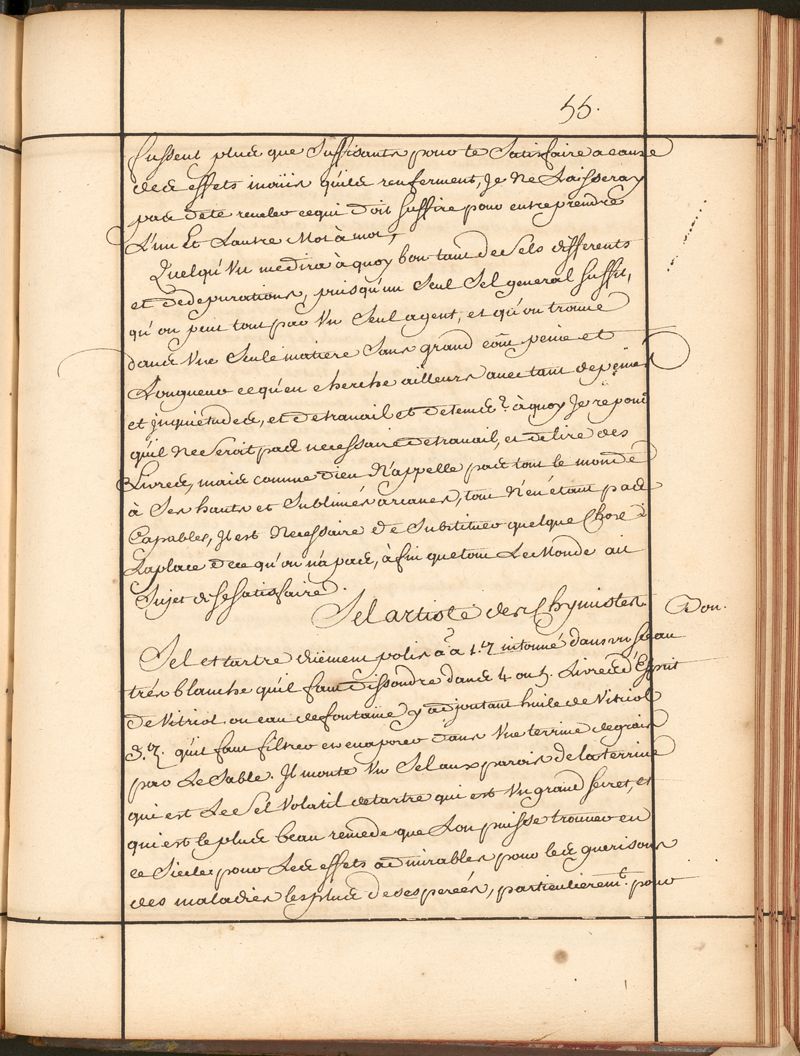 55.
fussent plus que suffisants pour te satisfaire a cause
des effets inoüis qu'ils renferment, Je ne Laisseray
pas de te reveler ce qui doit suffire pour entreprendre
L'un Et L'autre Mot à mot,
Quelqu'Un me dira à quoy bon tant de sels differents
et de depurations, puisqu'un seul sel general suffit,
qu'on peut tout par Un seul agent, et qu'on trouve
dans Une seule matiere sans grand peine et
Longueur ce qu'on cherche ailleurs avec tant de peines
et jnquietudes, et de travail et de tems? à quoy Je répons
qu'il ne seroit pas necessaire de travail, et de lire des
Livres, mais comme Dieu N'appelle pas tout le monde
à Ses hauts et Sublimes arcanes, tous N'en étant pas
Capables, Jl est Necessaire de Substituer quelque Chose à
La place de ce qu'on n'a pas, à fin que tout Le Monde ait
Sujet de se satisfaire.
Sel artiste des Chymistes. Don.
Sel et tartre criement polis aã 1. intonné dans un
trés blanche qu'il faut dissoudre dans 4 ou 5. Livres d'Esprit
de Vitriol ou eau de fontaine y adjoutant huile de Vitriol
3. qu'il faut filtrer et evaporer dans Une terrine de grais
par Le Sable. Jl monte Un Sel aux parois de la terrine
qui est Le Sel Volatil de tartre qui est Un grand secret, et
qui est le plus beau remede que Lon puisse trouver en
ce Siecle pour Les effets admirables pour les guerisons
des maladies les plus desesperées, particulieremt. pour